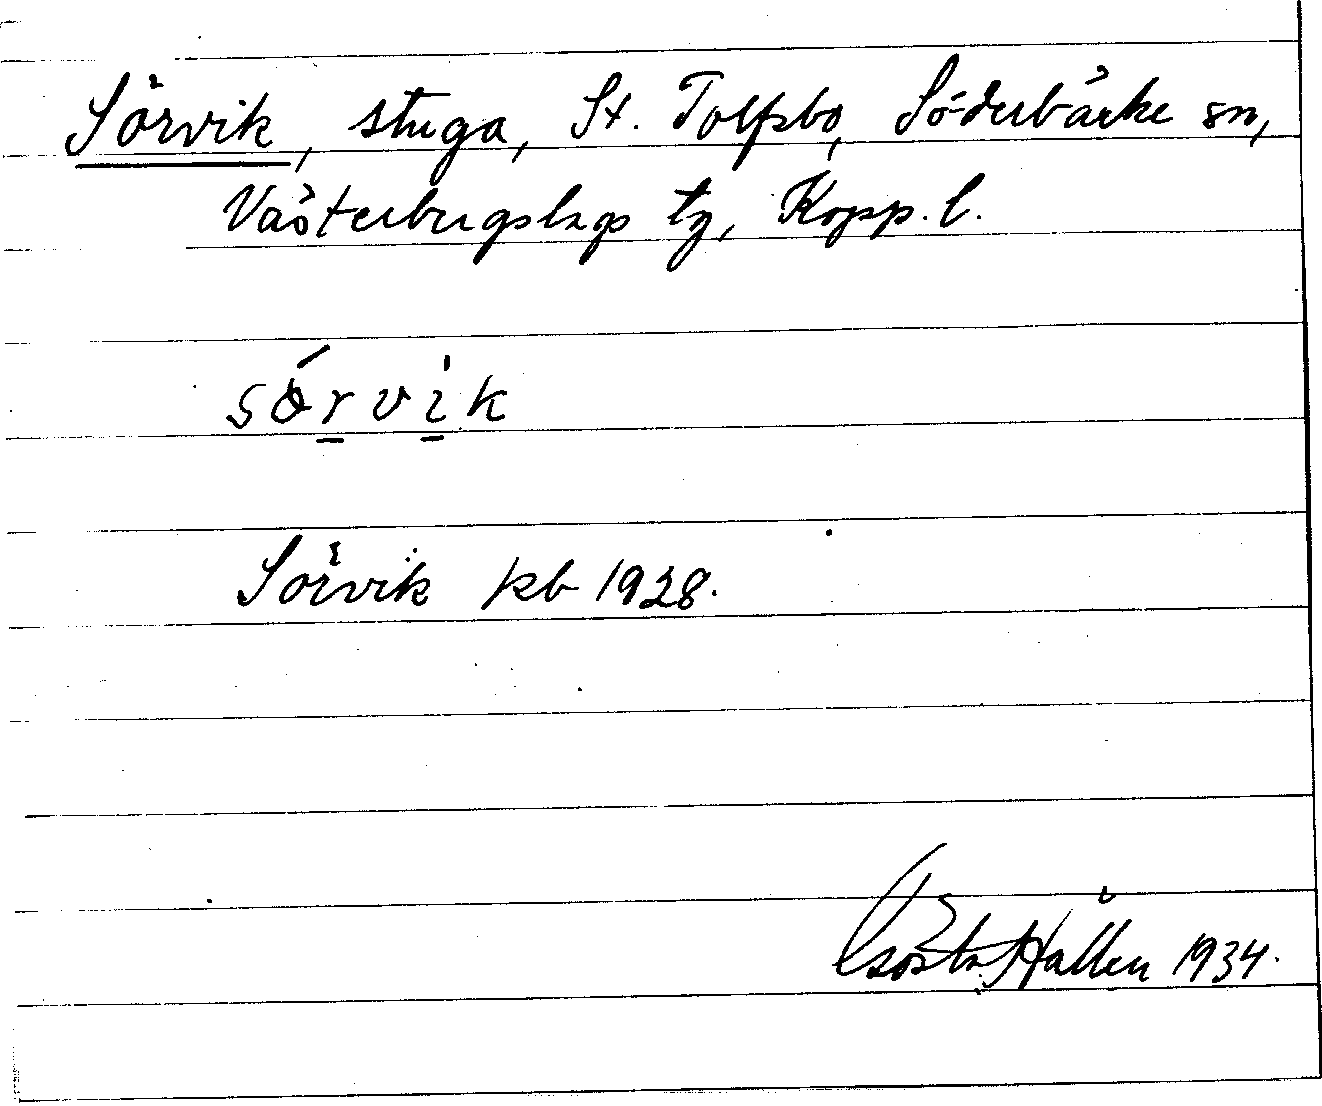 Sörvik, stuga, St. Tolfsbo, Söderbärke sn,
Västerbergslags tg, Kopp. l.
sörvik
Sörvik kb 1928.
Gösta Hallén 1934.